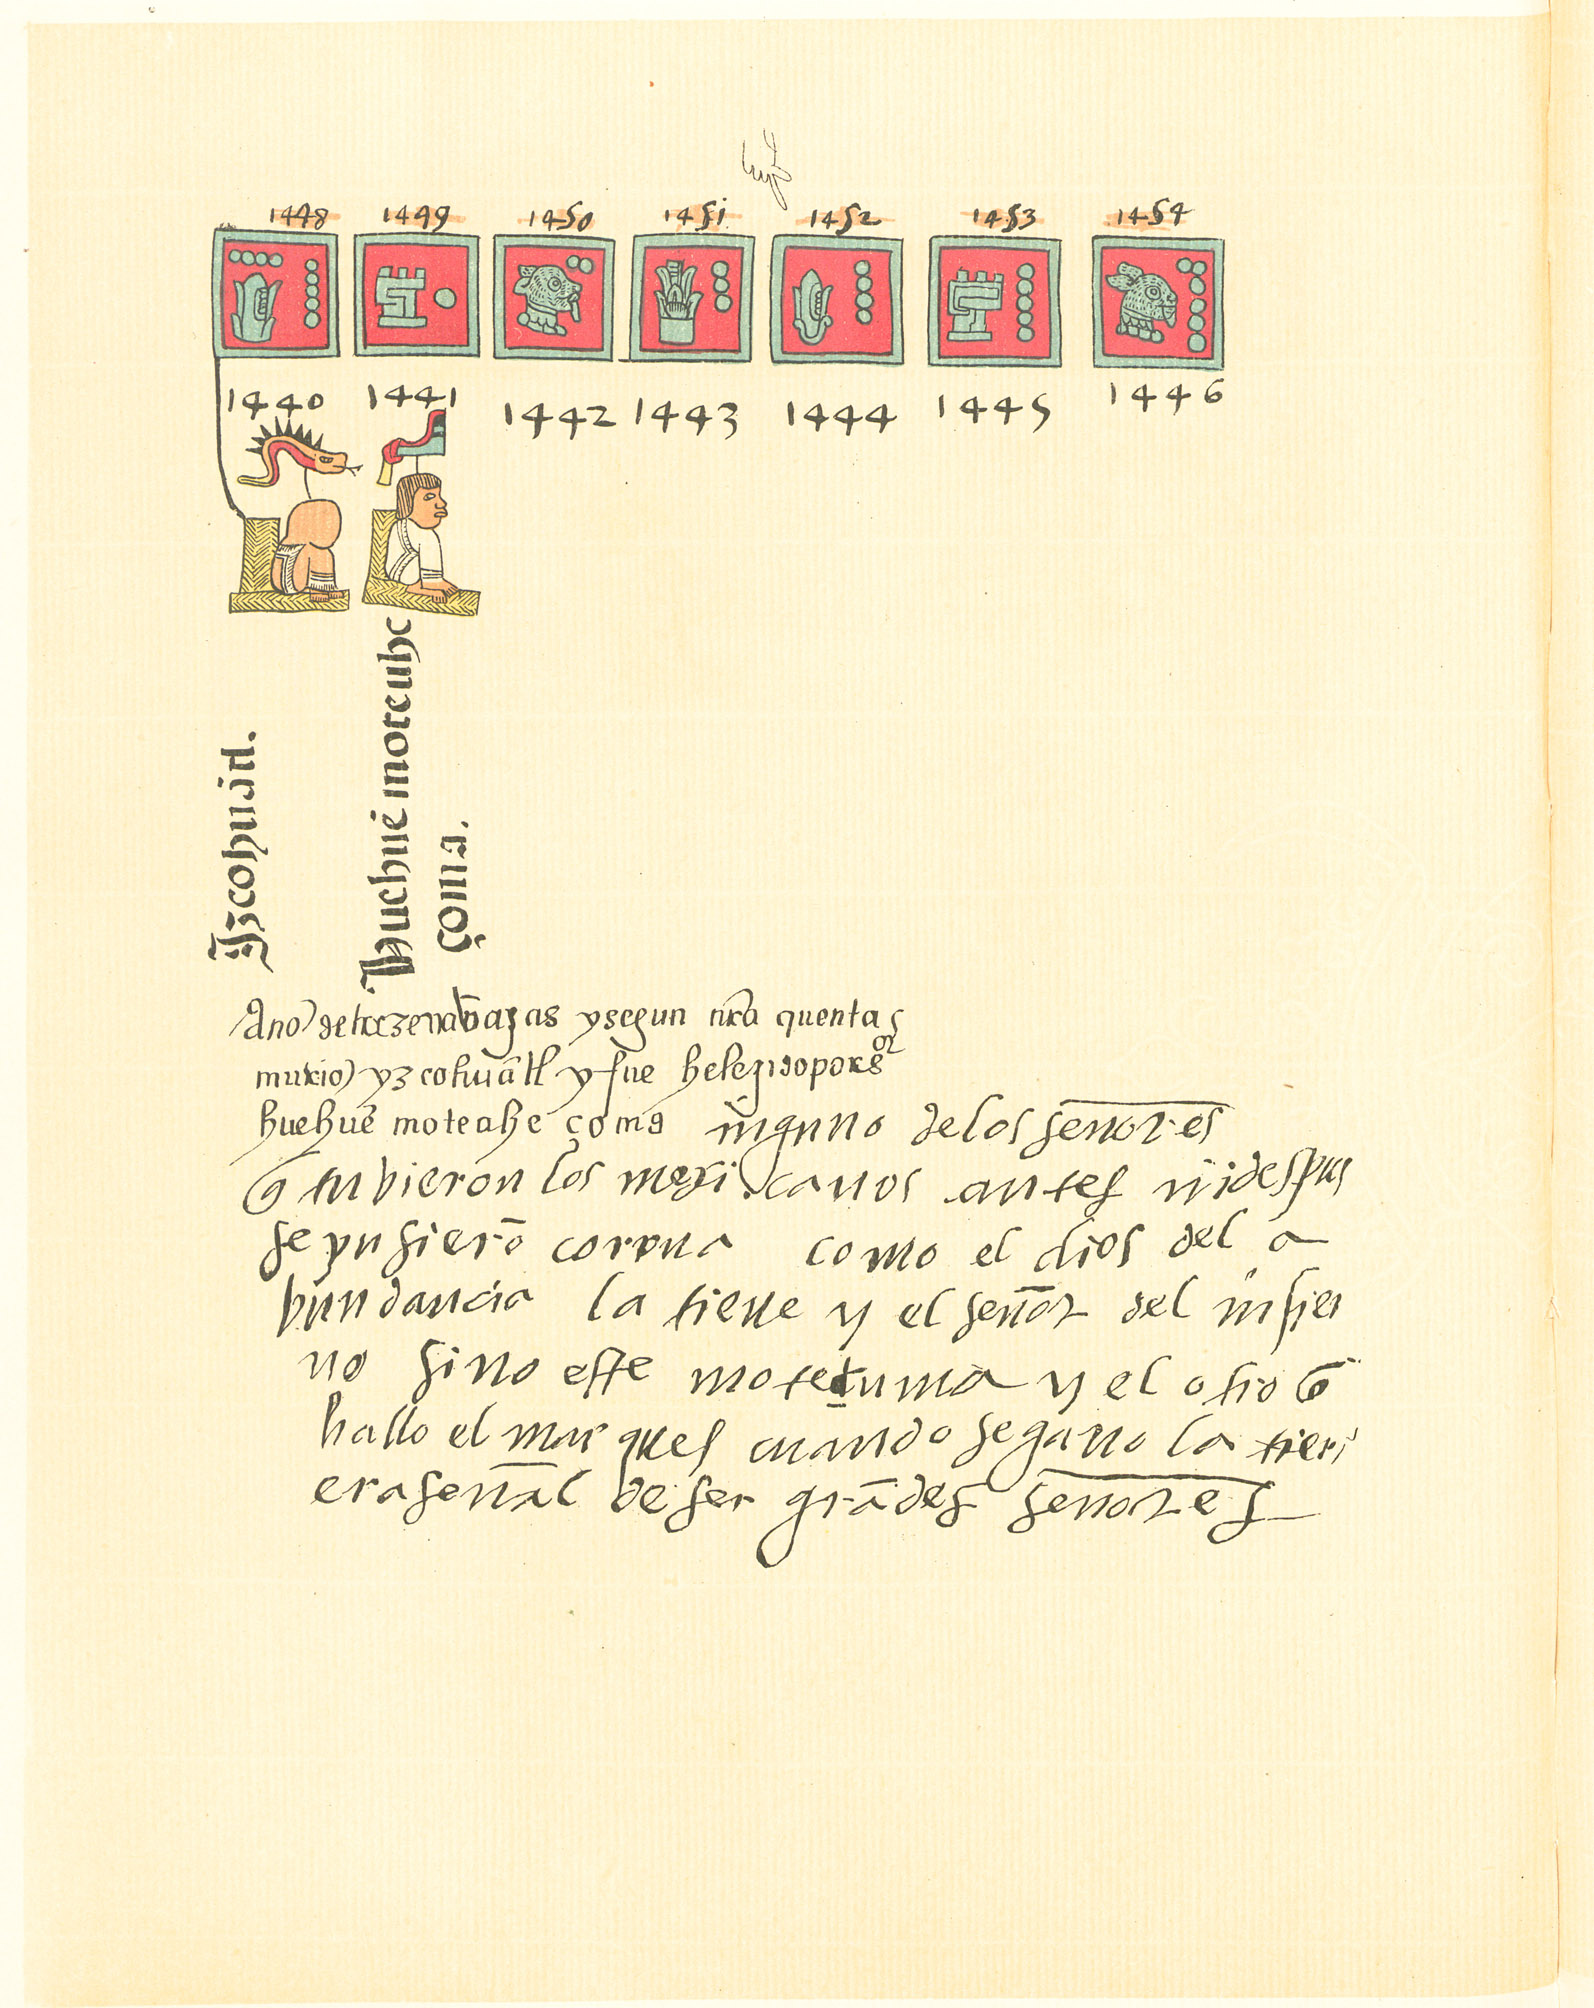 1448 1449 1450 1451 1452 1453 1454
1440 1441 1442 1443 1444 1445 1446
Yzcohuatl.
Huehue moteuhc
çoma.
Año de treze cañas y segun nr̃a quenta
murio yzcohuãtl y fue helegido por sor
huehue moteuhc çoma ninguno de los señores
q̃ tubieron los mexicanos antes ni despues
se pusierõ corona como el dios del a
bundancia la tiene y el señor del infier
no sino este moteçuma y el otro q̃
hallo el marques cuando se gano la tierr
era señal de ser grãdes señores